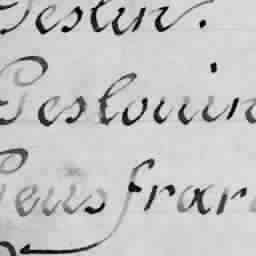 Geslin.
Geslouin
Geus frar